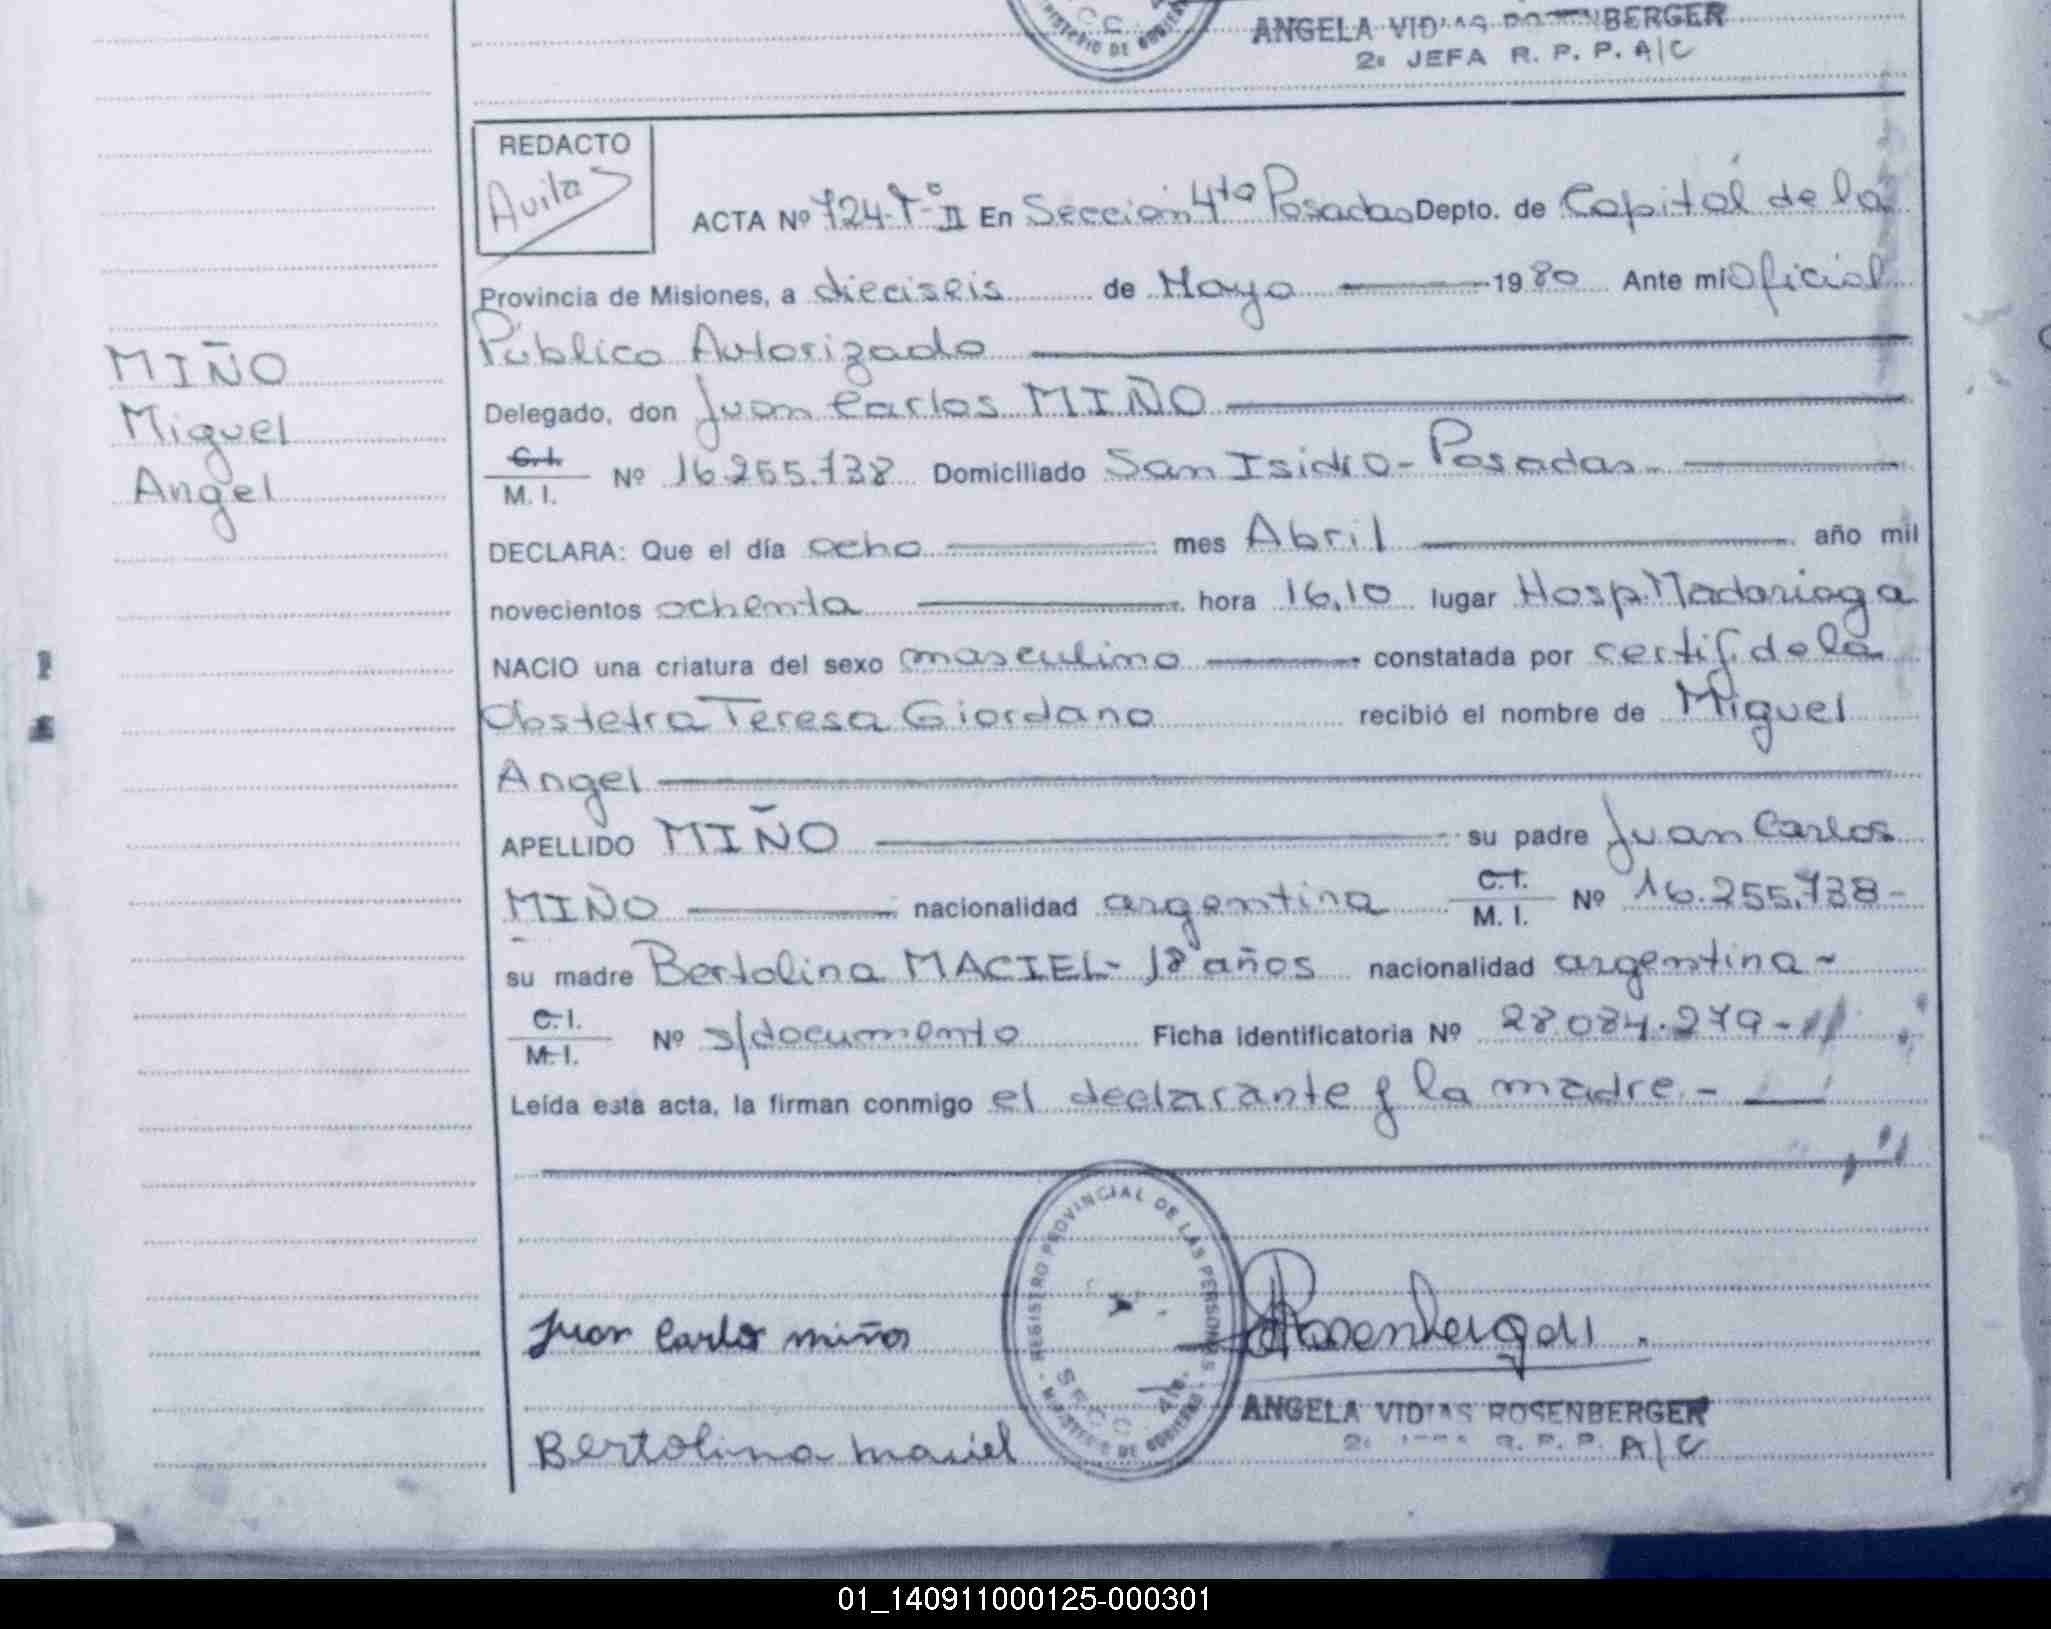 ANGELA VIDIAS ROSENBERGER
2ª JEFA R. P. P. A/C
MINISTERIO DE GOBIERNO
REDACTO
Avila
ACTA Nº 724-Tº-II En Sección 4ta Posadas Depto. de Capital de la
Provincia de Misiones, a dieciseis de Mayo 1980 Ante mi Oficial
Público Autorizado
Delegado, don Juan Carlos MIÑO
C.I.
M. I. Nº 16.255.738 Domiciliado San Isidro - Posadas
DECLARA: Que el día ocho mes Abril año mil
novecientos ochenta hora 16,10 lugar Hosp. Madariaga
NACIO una criatura del sexo masculino constatada por certif. de la
Obstetra Teresa Giordano recibió el nombre de Miguel
Angel
APELLIDO MIÑO su padre Juan Carlos
MIÑO nacionalidad argentina C.I. M. I. Nº 16.255.738-
su madre Bertolina MACIEL- 18 años nacionalidad argentina-
C.I.
M.I. Nº s/documento Ficha identificatoria Nº 28.084.279-
Leída esta acta, la firman conmigo el declarante y la madre.-
MIÑO
Miguel
Angel
REGISTRO PROVINCIAL DE LAS PERSONAS
SECC. 4ta.
MINISTERIO DE GOBIERNO
Juan Carlos miño
Rosenberger
ANGELA VIDIAS ROSENBERGER
2ª JEFA R. P. P. A/C
Bertolina maciel
01_140911000125-000301